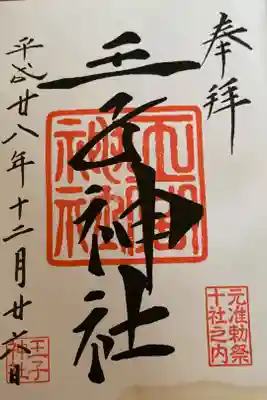 奉拝
王子神社
平成廿八年十二月廿六日
元准勅祭
十社之内
王子
神社